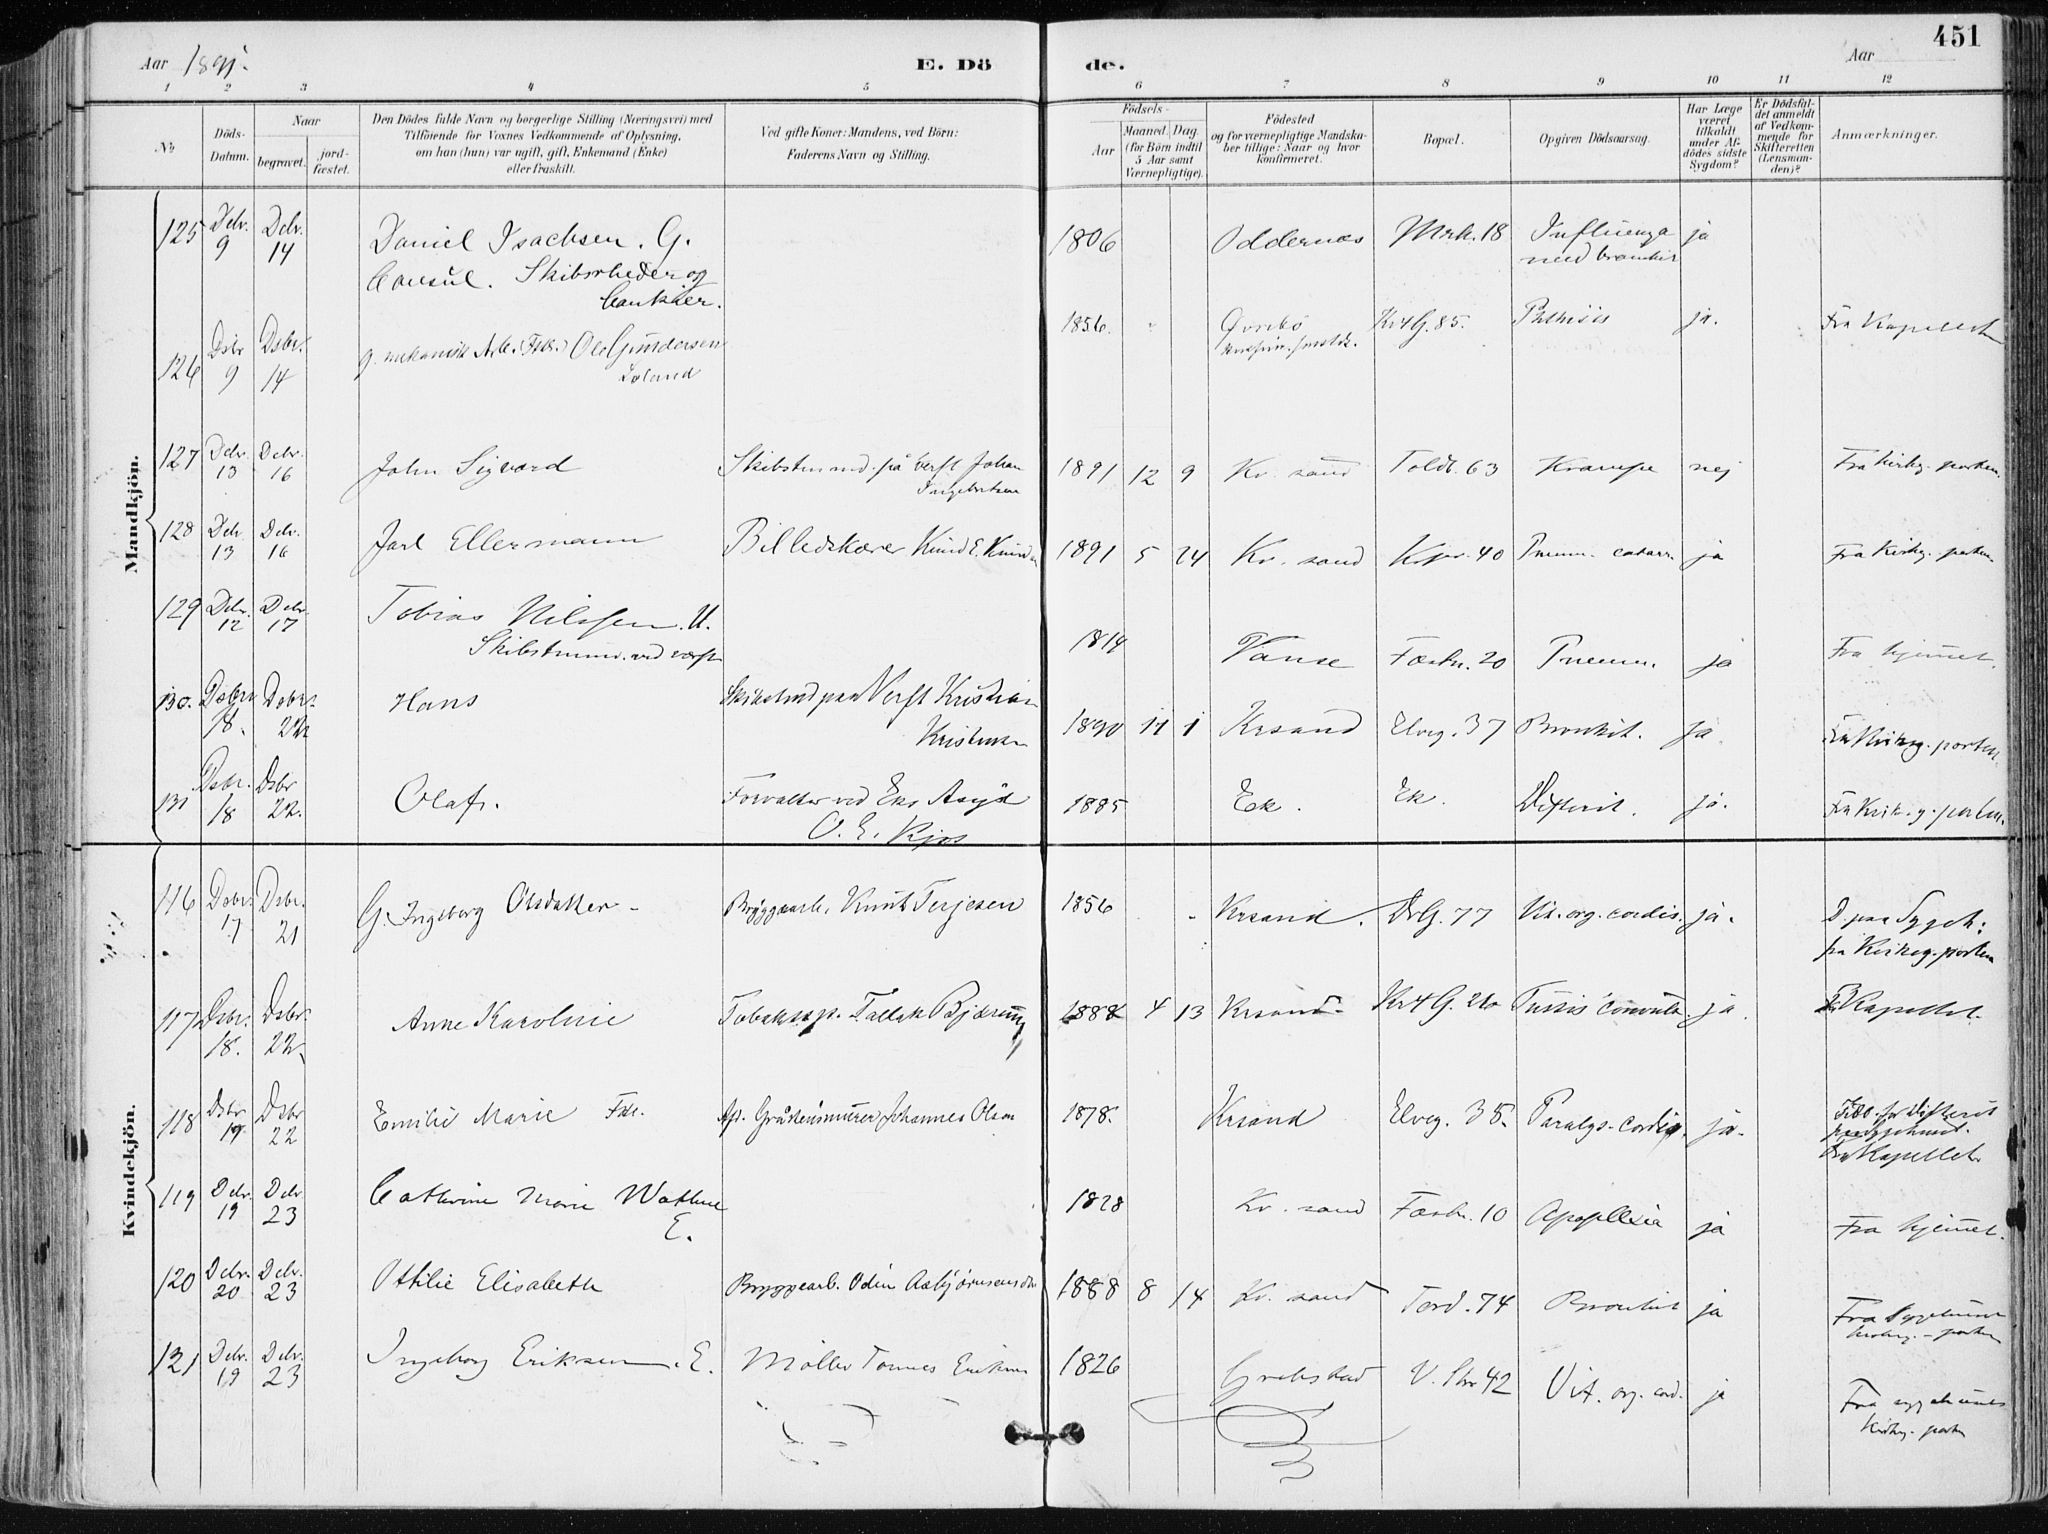 451
Aar 1891. E. Dö de. Aar
1 2 3 4 5 6 7 8 9 10 11 12
No
Döds-Datum.
Naar
begravet.
jord-fæstet.
Den Dödes fulde Navn og borgerlige Stilling (Næringsvei) med
Tilföiende for Voxnes Vedkommende af Oplysning,
om han (hun) var ugift, gift, Enkemand (Enke)
eller fraskilt.
Ved gifte Koner: Mandens, ved Börn:
Faderens Navn og Stilling.
Födsels-
Aar
Maaned. Dag.
(for Börn indtil
5 Aar samt
Værnepligtige).
Födested
og for værnepligtige Mandska-
ber tillige: Naar og hvor
konfirmeret.
Bopæl.
Opgiven Dödsaarsag.
Har Læge
været
tilkaldt
under Af-
dödes sidste
Sygdom?
Er Dödsfal-
det anmeldt
af Vedkom-
mende for
Skifteretten
(Lensman-
den)?
Anmærkninger.
Mandkjön.
125 Debr. 9 Debr. 14 Daniel Isachsen. G. 1806 Oddernæs Mrk. 18 Influenza ja
Consul. Skibsrheder og
Bankier.
126 Dsbr 9 Dsbr. 14 g. mekanisk Arb. Ole Gundersen 1856. Øvrebø Kr4G. 85. Phthisis ja. Fra Kapellet
127 Debr. 13 Debr. 16 John Sigvard Skibstmmd. på Verft Johan 1891 12 9 Kr. sand Toldb. 63 Krampe nej Fra Kirkg. porten.
Ingebretsen
128 Debr 13 Debr. 16 Jarl Ellermann Billedskærer Knud E. 1891 5 24 Kr. sand 40 Pneum. catarr. ja Fra Kirkg. porten
129 Debr. 12 Debr. 17 Tobias Nilssen. U. 1814 Vanse Fæstn. 20 Pneum. ja Fra hjemmet.
Skibstmmd. ved verft
130. Dsbr. 18. Dsbr. 22 Hans Verft Kristian 1890 11 1 Krsand Elveg. 37 Bronkit. ja Fra Kirkeg. porten
Kristensen
131 Dsbr. 18 Dsbr 22. Olaf. Forvalter ved Eks Asyl 1885 Eek. Ek. Difterit. ja. Fra Kirk.g. porten.
O. E. Kjos
Kvindekjön.
116 Dsbr. 17 Dsbr. 21 G. Ingeborg Olsdatter Bryggearb. Knut Terjesen 1856 Krsand. DrG. 77 Vit. org. cordis. ja. D. paa Sygeh:
fra Kirkeg. porten
117 Dsbr. 18. Dsbr. 22. Anne Karoline Tobaksp. Fallak 4 13 Krsand. Kr4G. Tussis convuls. ja. Fra Kapellet.
118 Dsbr 19. Dsbr 22 Emilie Marie Gråstensmurer Johannes Olsen 1878. Krsand Elveg. 35. Paralys. cordis. ja. for Difterit
Fra Kapellet
119 Debr 19 Debr 23 Cathrine Marie Wathne 1828 Kr. sand Fæstn. 10 Apoplexia ja Fra hjemmet.
E.
120 Debr. 20 Debr. 23 Ottilie Elisabeth Bryggearb. Odin Aasbjørnsen 1888 8 14 Kr. sand Tord. 74 Bronkit ja Fra Sygehuset
kirkeg. porten
121 Debr. 19 Debr. 23 Ingeborg Eriksen. E. Møller Tønnes Eriksen 1826 Grebstad V. Str 42 Vit. org. cord. ja Fra sygehuset
Kirkg. porten